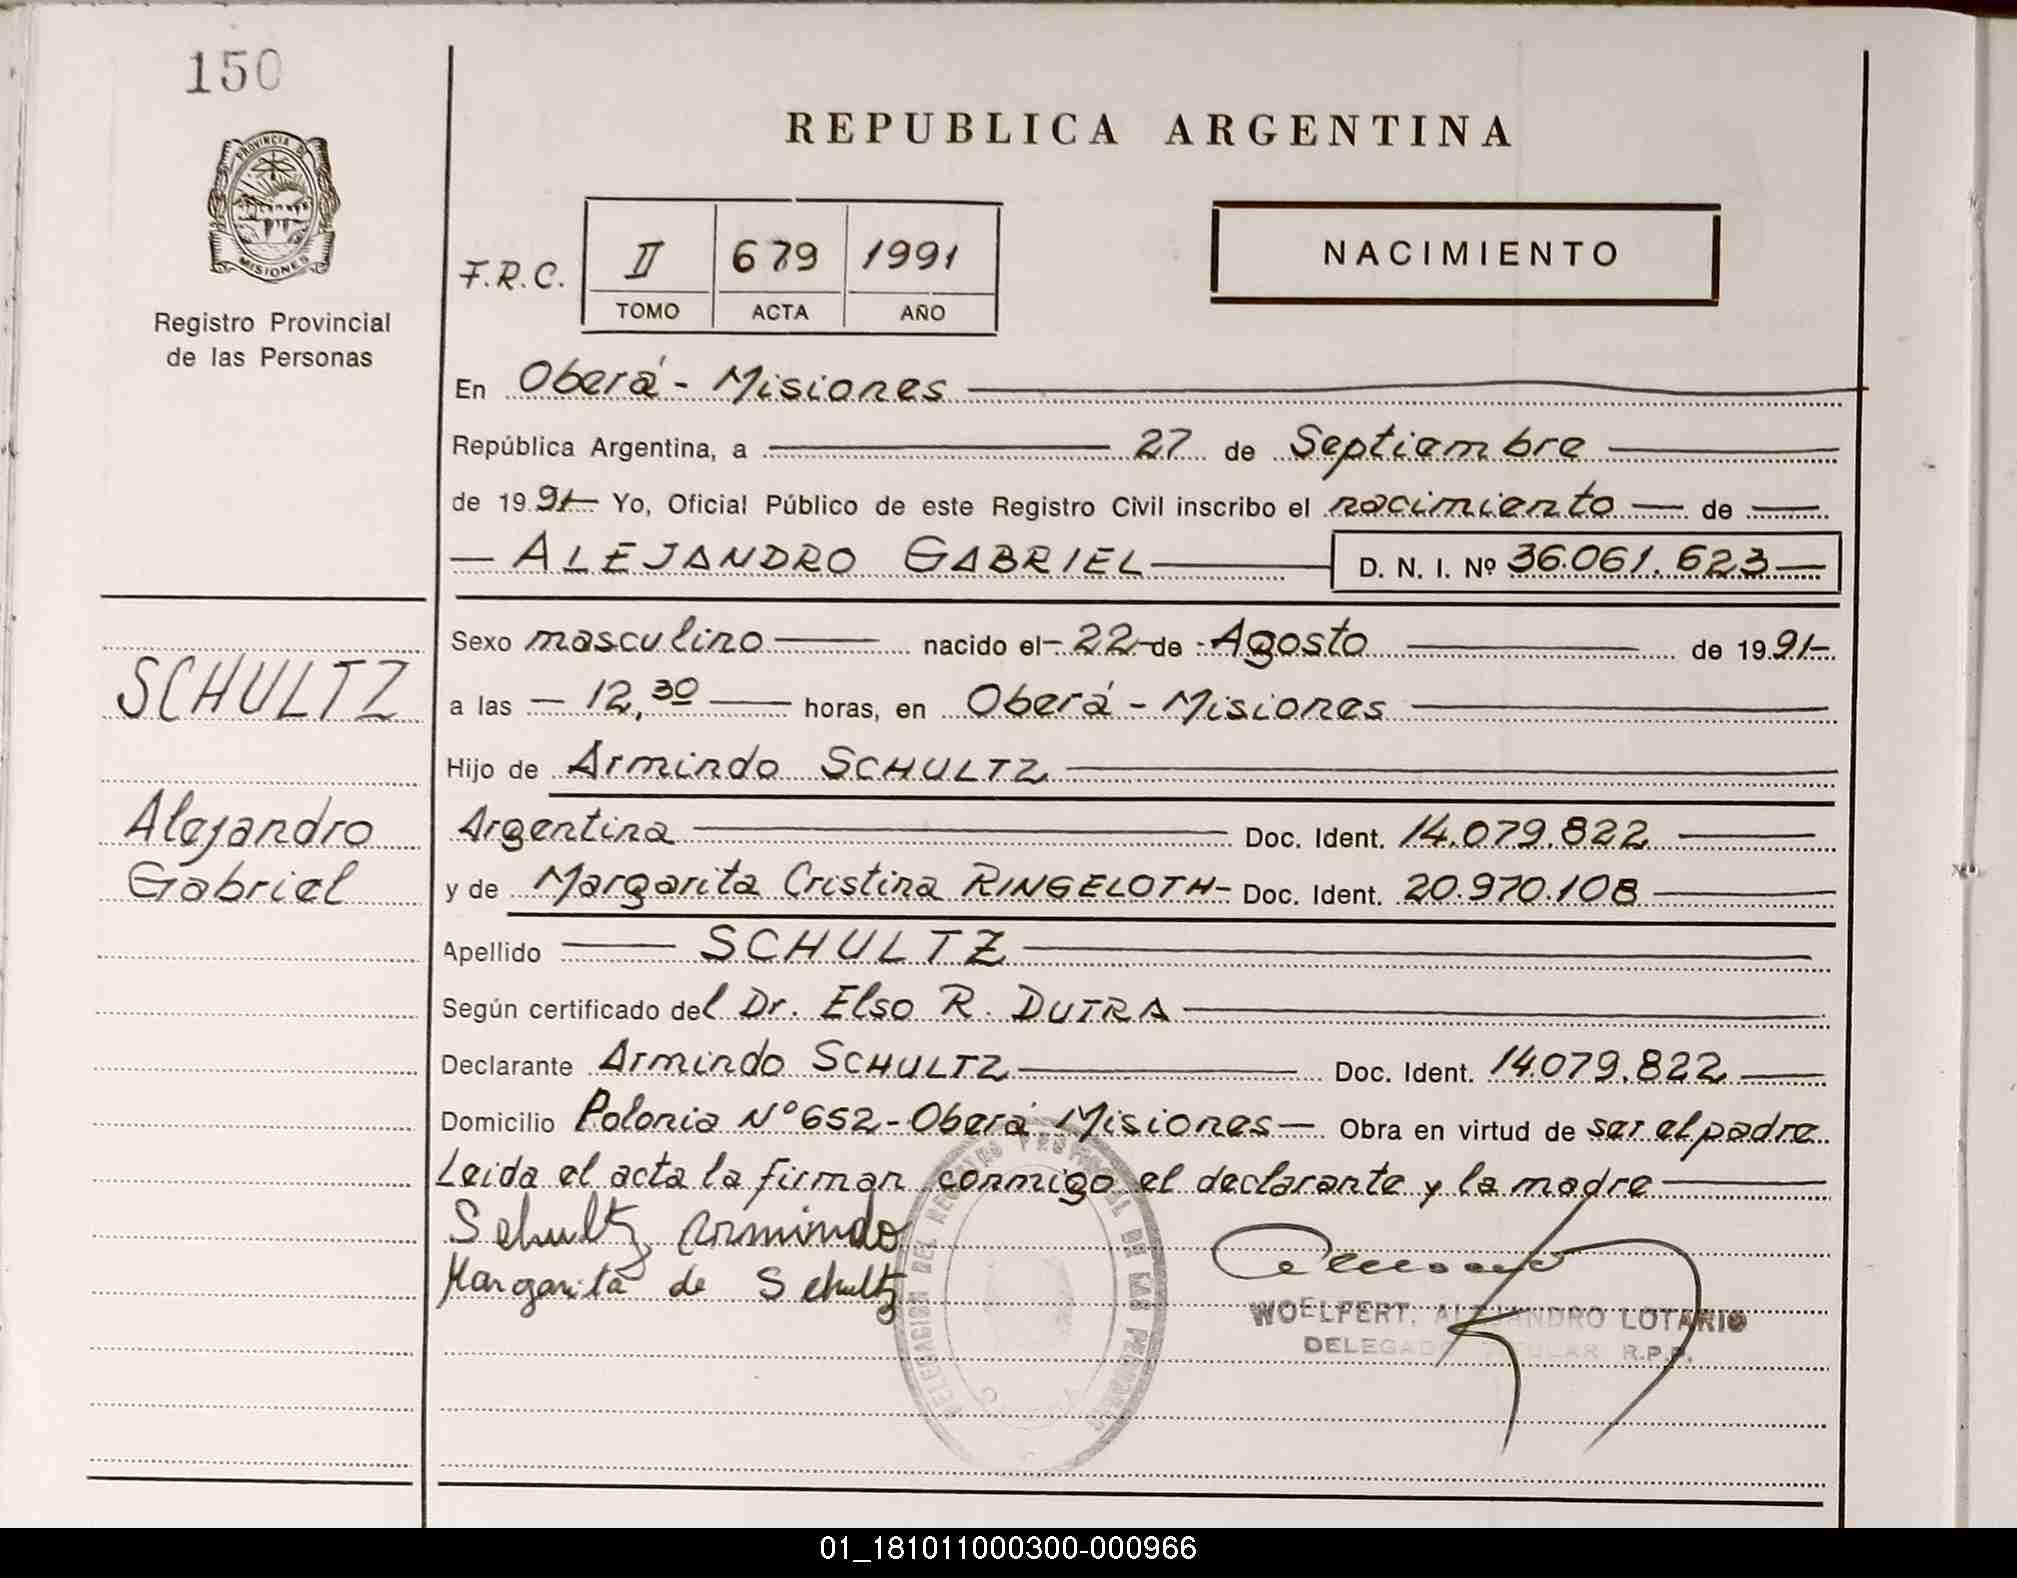 150
REPUBLICA ARGENTINA
PROVINCIA D
MISIONES
Registro Provincial
de las Personas
F.R.C. II 679 1991
TOMO ACTA AÑO
NACIMIENTO
En Oberá - Misiones
República Argentina, a 27 de Septiembre
de 1991 Yo, Oficial Público de este Registro Civil inscribo el nacimiento de
ALEJANDRO GABRIEL D. N. I. Nº 36.061.623
Sexo masculino nacido el 22 de Agosto de 1991
a las 12,30 horas, en Oberá - Misiones
Hijo de Armindo SCHULTZ
Argentina Doc. Ident. 14.079.822
y de Margarita Cristina RINGELOTH Doc. Ident. 20.970.108
Apellido SCHULTZ
Según certificado del Dr. Elso R. DUTRA
Declarante Armindo SCHULTZ Doc. Ident. 14.079.822
Domicilio Polonia Nº 652 - Oberá Misiones Obra en virtud de ser el padre
Leida el acta la firman conmigo el declarante y la madre
Schultz Armindo
Margarita de Schultz
SCHULTZ
Alejandro
Gabriel
DELEGACION DEL REGISTRO PROVINCIAL DE LAS PERSONAS
WOELFERT. ALEJANDRO LOTARIO
DELEGADO TITULAR R.P.P.
01_181011000300-000966